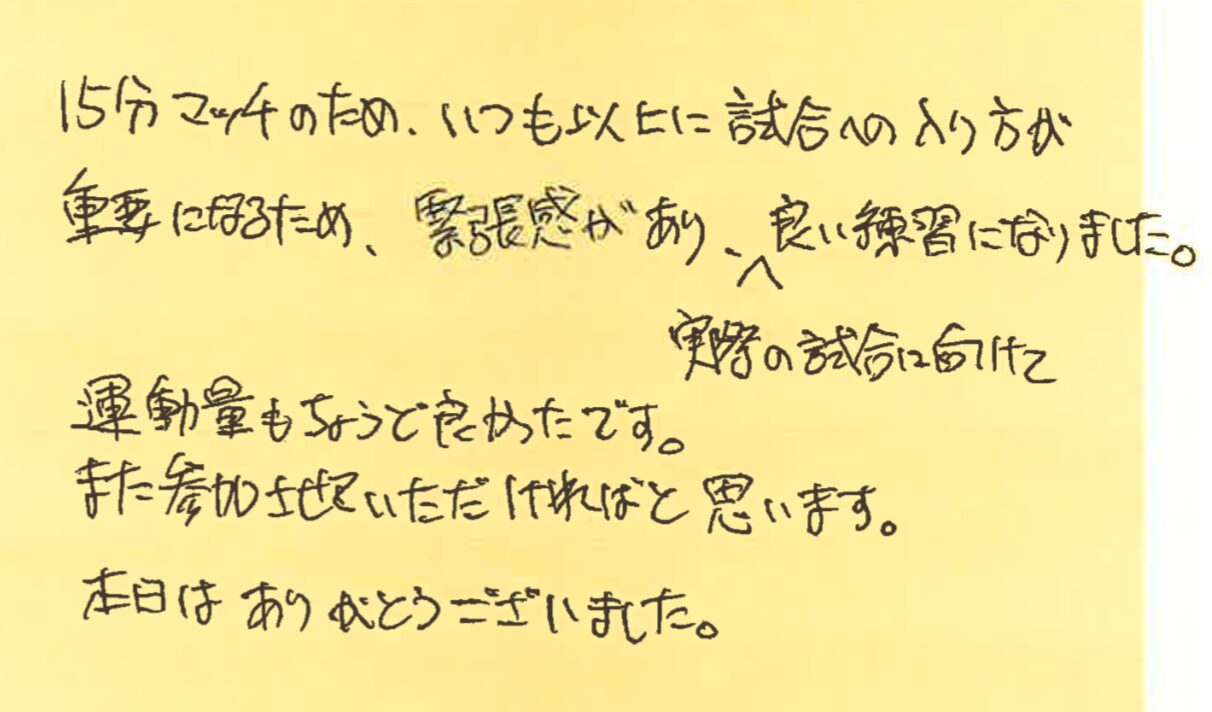 15分マッチのため、いつも以上に試合への入り方が
重要になるため、緊張感があり、良い練習になりました。
実際の試合に向けて
運動量もちょうど良かったです。
また参加させていただければと思います。
本日はありがとうございました。